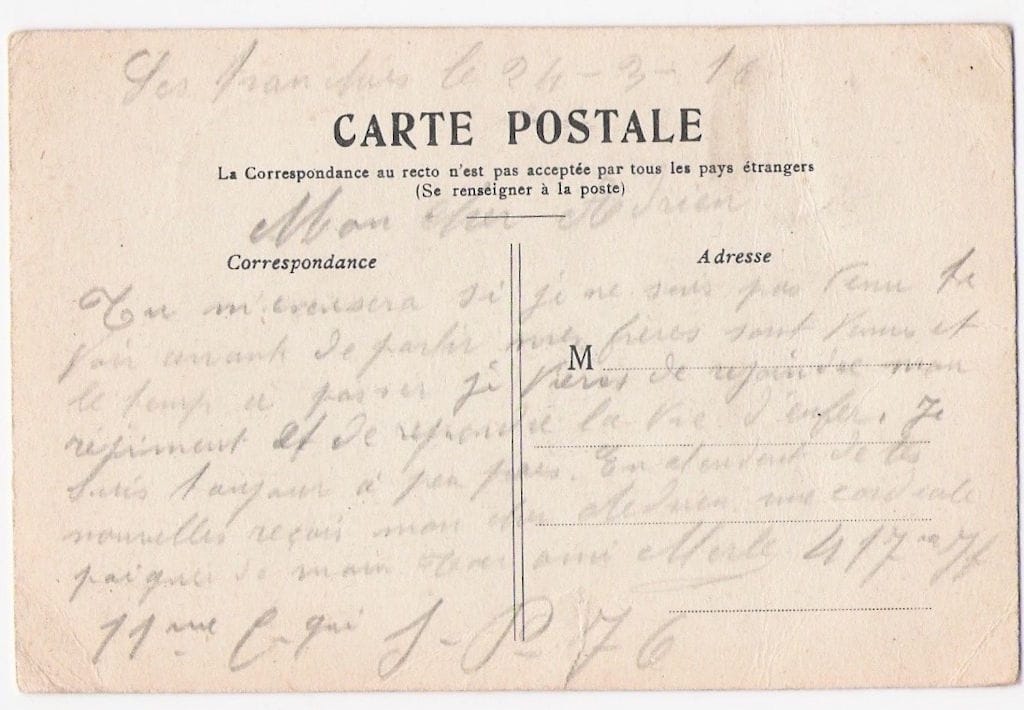 Les Tranchées le 24-3-16
CARTE POSTALE
La Correspondance au recto n'est pas acceptée par tous les pays étrangers
(Se renseigner à la poste)
Mon cher Adrien
Correspondance
Adresse
Tu m'excusera si je ne suis pas venu te
voir avant de partir mes frères sont venus et
M
le temp a passer je viens de rejoindre mon
régiment et de reprendre la vie d'enfer. Je
suis toujour à peu près. En attendent de tes
nouvelles reçois mon cher Adrien une cordiale
poignée de main ton ami Merle 417me
11me Cgnie S-P 76